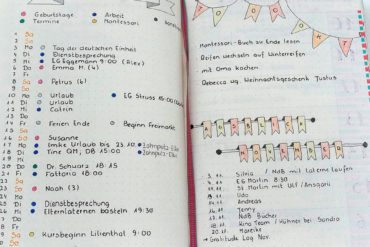 Geburtstage
Termine
Arbeit
Montessori
1 Sa
2 So
3 Mo Tag der deutschen Einheit
4 Di Dienstbesprechung
5 Mi EG Eggemann 9:00 (Alex)
6 Do Emma M. (4)
7 Fr
8 Sa Petrus (6)
9 So
10 Mo Urlaub
EG Struss 15:00
11 Di Urlaub
12 Mi Catrin
13 Do
14 Fr Ferien Ende
Beginn Freimarkt
15 Sa
16 So Susanne
17 Mo Imke Urlaub bis 23.10.
18 Di Tine GM, DB 15:00
19 Mi
20 Do Dr. Schwarz 18:15
21 Fr Fattoria 18:00
22 Sa
23 So Noah (3)
24 Mo
25 Di Dienstbesprechung
26 Mi Elternlaternen basteln 19:30
27 Do
28 Fr
29 Sa Kursbeginn Lilienthal 9:00
30 So
31 Mo
TO DO
OKT
Montessori-Buch zu Ende lesen
Reifen wechseln auf Winterreifen
mit Oma kochen
Rebecca wg. Weihnachtsgeschenk Justus
Silvia / NdB mit Laterne laufen
EG Martin 8:30
St Martin mit Ulf / Ansgarii
Udo
Andreas
Jenny
NdB Bücher
Kino Team / Hühner bei Sandra
Mareike
Gratitude Log Nov